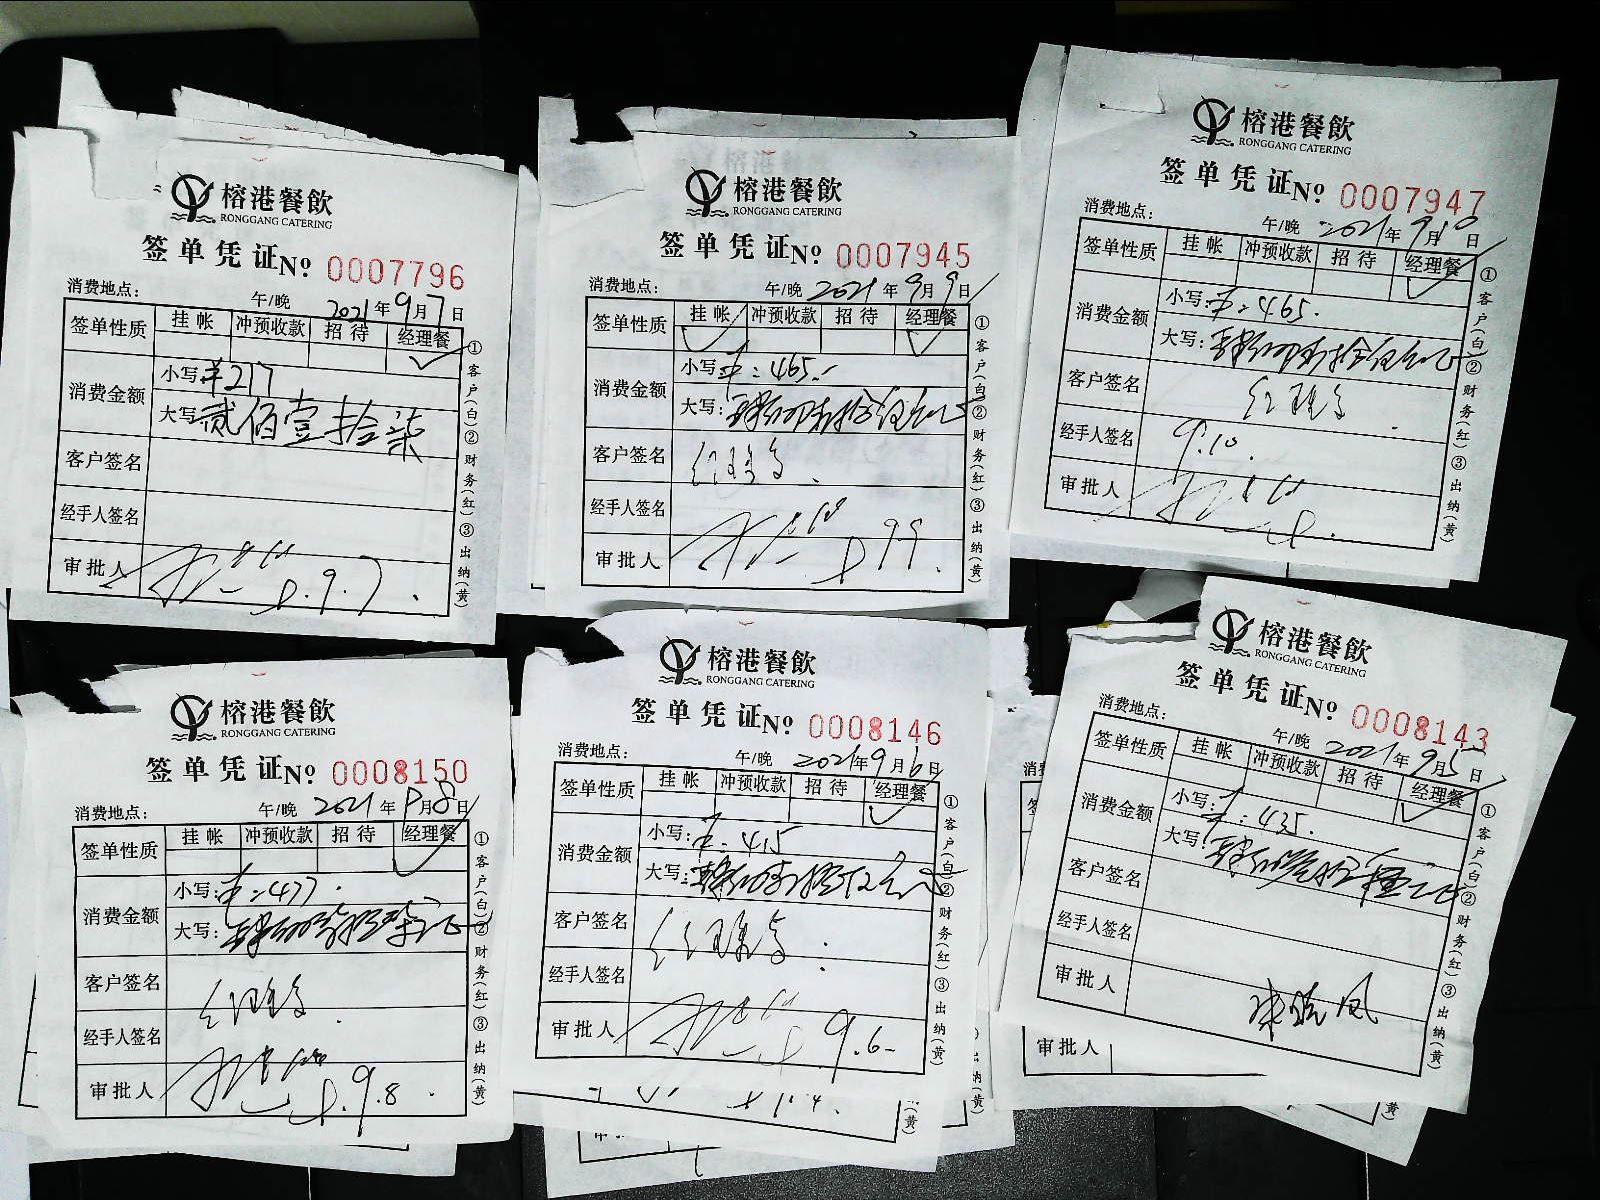 榕港餐飲
RONGGANG CATERING
签单凭证 № 0007796
消费地点： 午/晚 2021年9月7日
签单性质 挂帐 冲预收款 招待 经理餐
✓
消费金额 小写：¥217
大写：贰佰壹拾柒
客户签名
经手人签名
审批人 9.7
①客户(白)②财务(红)③出纳(黄)
榕港餐飲
RONGGANG CATERING
签单凭证 № 0007945
消费地点： 午/晚 2021年9月9日
签单性质 挂帐 冲预收款 招待 经理餐
✓ ✓
消费金额 小写：¥:465.-
大写：
客户签名
经手人签名
审批人 9.9.
①客户(白)②财务(红)③出纳(黄)
榕港餐飲
RONGGANG CATERING
签单凭证 № 0007947
消费地点： 午/晚 2021年9月10日
签单性质 挂帐 冲预收款 招待 经理餐
✓
消费金额 小写：¥:465.
大写：
客户签名
经手人签名 9.10.
审批人
①客户(白)②财务(红)③出纳(黄)
榕港餐飲
RONGGANG CATERING
签单凭证 № 0008150
消费地点： 午/晚 2021年9月8日
签单性质 挂帐 冲预收款 招待 经理餐
✓
消费金额 小写：¥:477.
大写：
客户签名
经手人签名
审批人 9.8.
①客户(白)②财务(红)③出纳(黄)
榕港餐飲
RONGGANG CATERING
签单凭证 № 0008146
消费地点： 午/晚 2021年9月6日
签单性质 挂帐 冲预收款 招待 经理餐
✓
消费金额 小写：¥:415
大写：
客户签名
经手人签名
审批人 9.6-
①客户(白)②财务(红)③出纳(黄)
榕港餐飲
RONGGANG CATERING
签单凭证 № 0008143
消费地点： 午/晚 2021年9月5日
签单性质 挂帐 冲预收款 招待 经理餐
✓
消费金额 小写：¥:435.
大写：
客户签名
经手人签名
审批人
①客户(白)②财务(红)③出纳(黄)
审批人